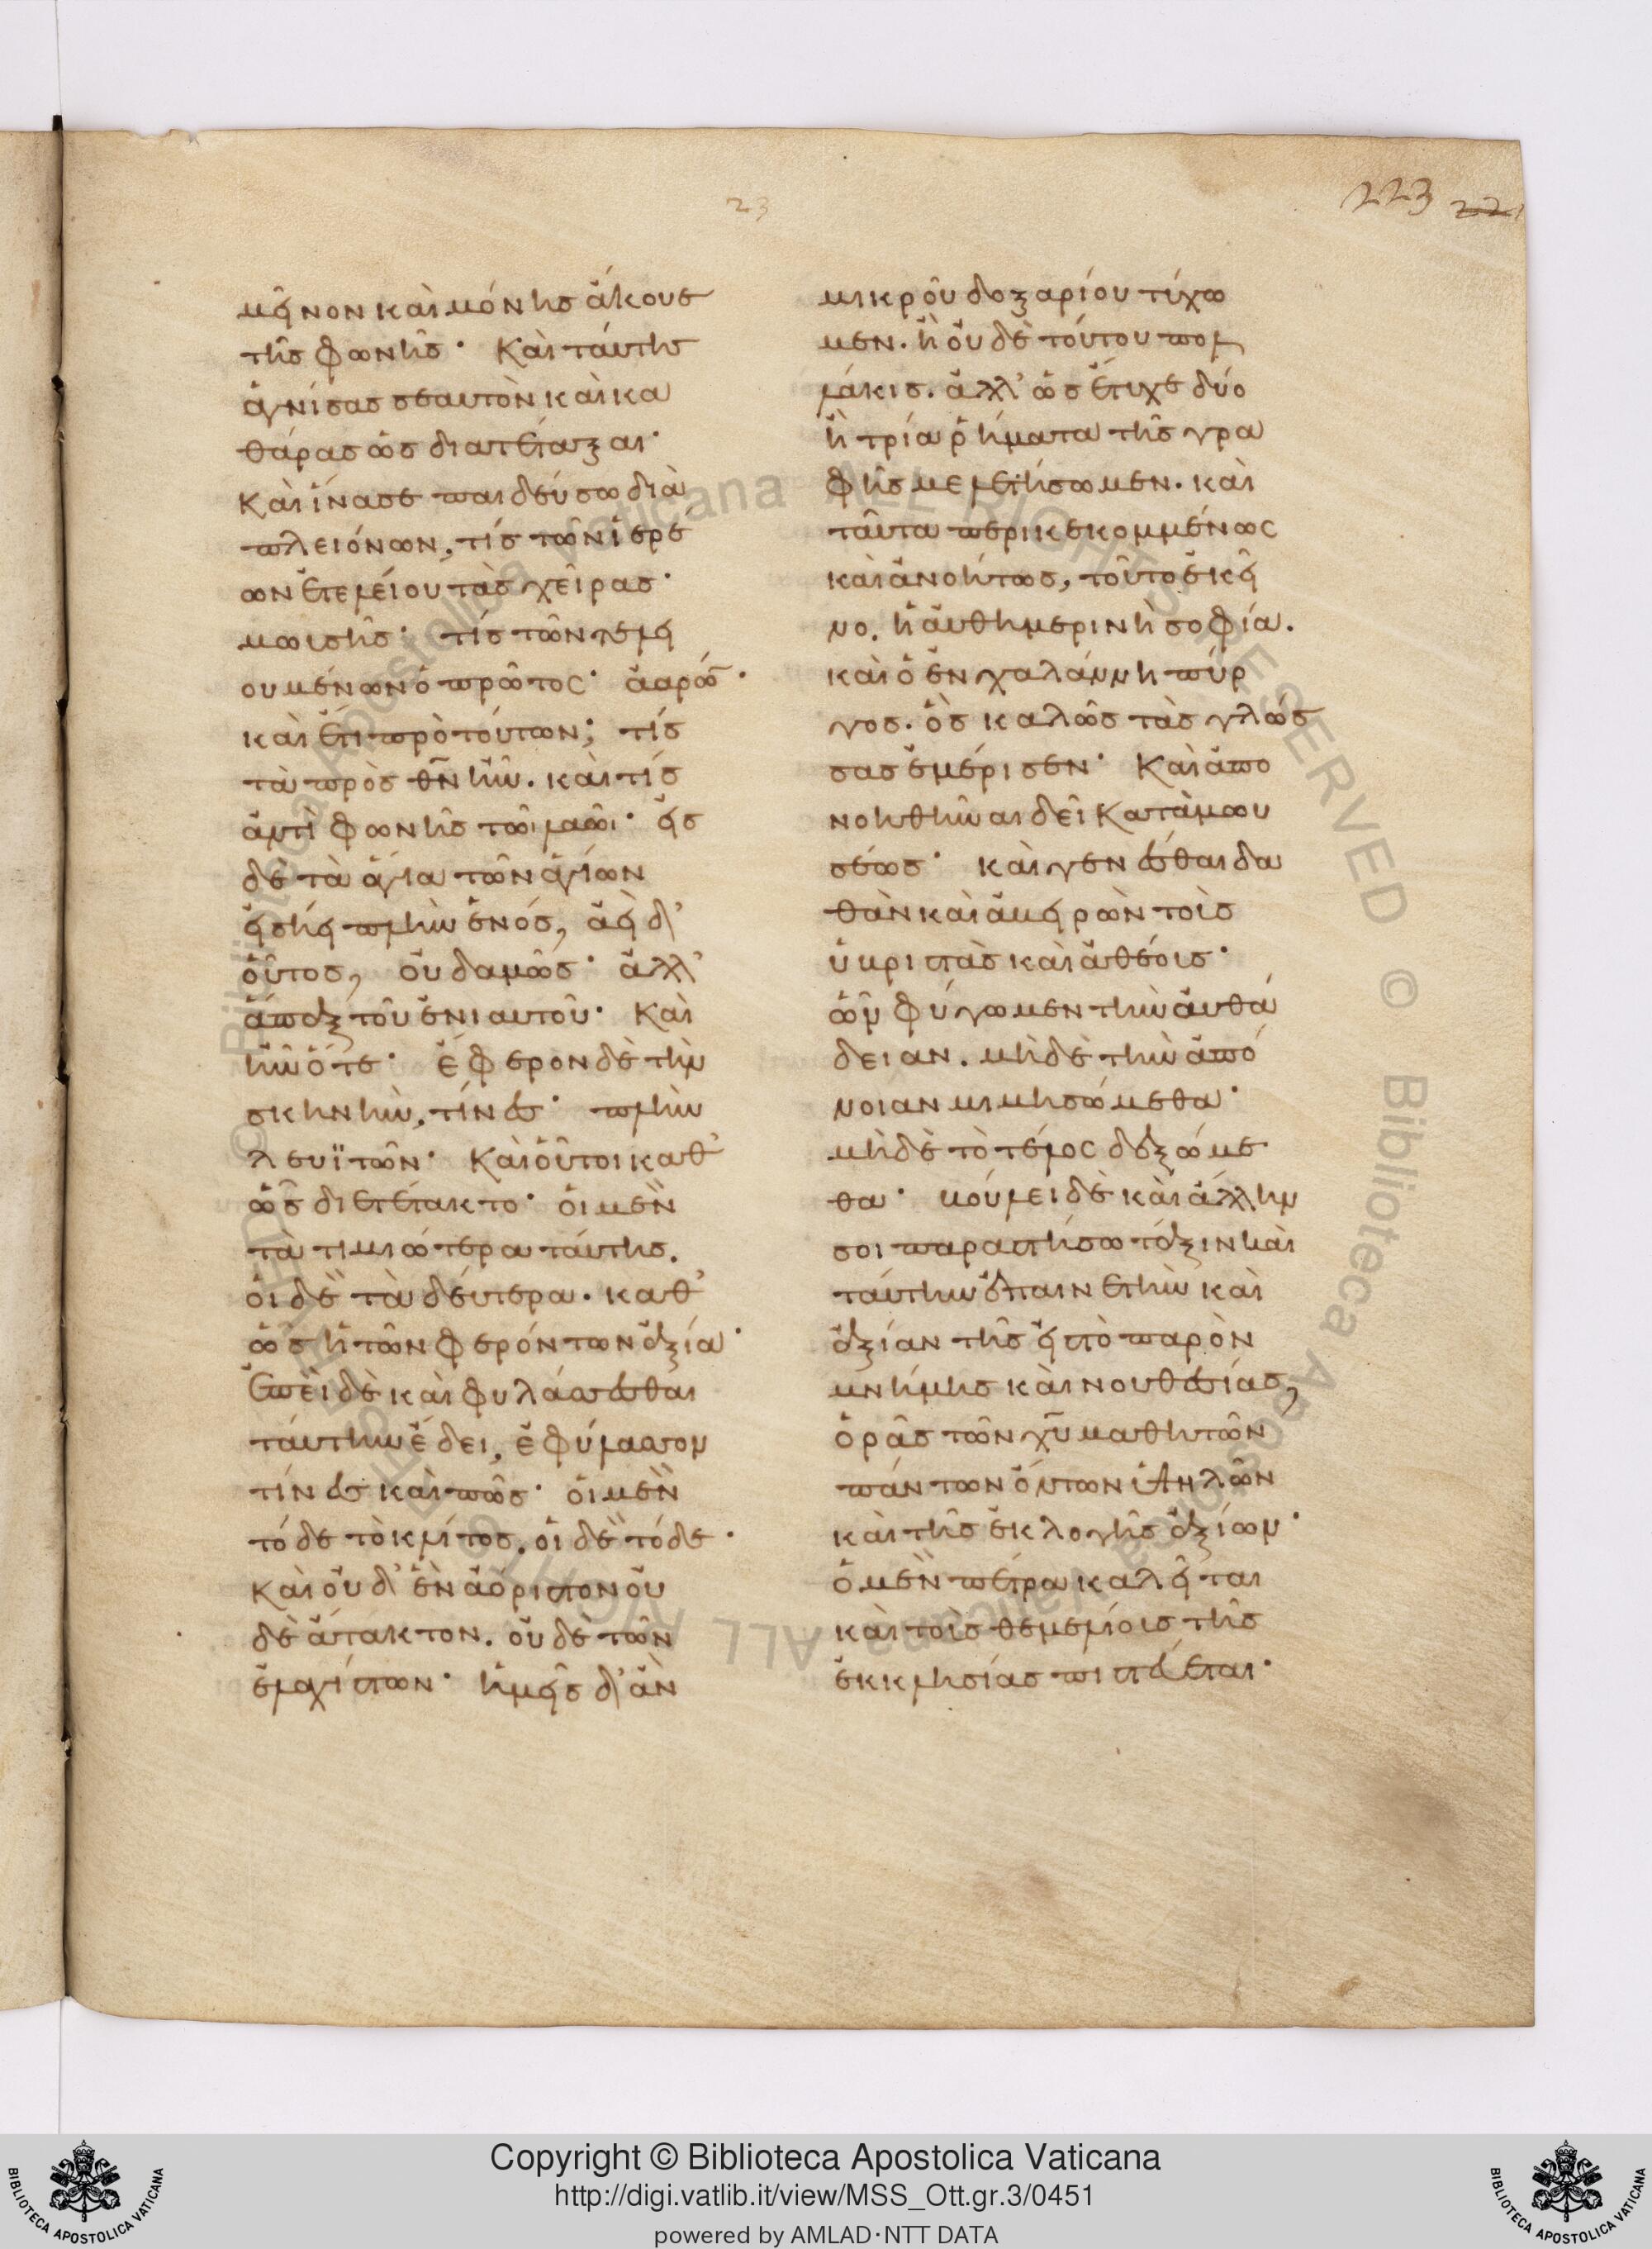 23
223 221
μεῖνον καὶ μόνης ἄκουε
τῆς φωνῆς· Καὶ ταύτης
ἁγνίσας σεαυτὸν καὶ κα
θάρας ὡς διατέταξαι·
Καὶ ἵνα σε παιδεύσω διὰ
πλειόνων, τίς τῶν ἱερέ
ων ἐτελείου τὰς χεῖρας·
μωισῆς· τίς τῶν τελει
ουμένων ὁ πρῶτος· ἀαρών·
καὶ ἔτι πρὸ τούτων; τίς
τὰ πρὸς θν ἦν. καὶ τίς
ἀντὶ φωνῆς τῶι λαῶι· εἴσ
δὲ τὰ ἅγια τῶν ἁγίων
εἰσήει πλὴν ἑνός, ἀεὶ δ'
οὗτος, οὐδαμῶς· ἀλλ'
ἅπαξ τοῦ ἐνιαυτοῦ· Καὶ
ἦν ὅτε· ἔφερον δὲ τὴν
σκηνὴν, τίνες· πλὴν
λευϊτῶν· Καὶ οὗτοι καθ'
ὡς διετέτακτο· οἱ μὲν
τὰ τιμιώτερα ταύτης.
οἱ δὲ τὰ δεύτερα. καθ'
ὡς ἡ τῶν φερόντων ἀξία·
Ἐπεὶ δὲ καὶ φυλάσσεσθαι
ταύτην ἔδει, ἐφύλασσον
τίνες καὶ πῶς· οἱ μὲν
τόδε τὸ κλίτος. οἱ δὲ τόδε·
καὶ οὐδ' ἓν ἀόριστον οὐ
δὲ ἄτακτον. οὐδὲ τῶν
ἐλαχίστων· ἡμεῖς δ' ἂν
μικροῦ δοξαρίου τύχω
μεν. ἢ οὐδὲ τούτου πολ
λάκις. ἀλλ' ὡς ἔτυχε δύο
ἢ τρία ῥήματα τῆς γρα
φῆς μελετήσωμεν. καὶ
ταῦτα περικεκομμένως
καὶ ἀνοήτως, τοῦτο ἐκεῖ
νο. ἡ αὐθημερινὴ σοφία.
καὶ ὁ ἐν χαλάννη πύρ
γος. ὃς καλῶς τὰς γλώσ
σας ἐμέρισεν· Καὶ ἀπο
νοηθῆναι δεῖ κατὰ μωυ
σέως· καὶ γενέσθαι δα
θὰν καὶ ἀμειρὼν τοῖς
ὑβρισταῖς καὶ ἀθέοις·
ὧν φύγωμεν τὴν αὐθά
δειαν. μὴ δὲ τὴν ἀπό
νοιαν μιμησώμεθα·
μὴ δὲ τὸ τέλος δεξώμε
θα· βούλει δὲ καὶ ἄλλην
σοι παραστήσω τάξιν καὶ
ταύτην ἐπαινετὴν καὶ
ἀξίαν τῆς εἰς τὸ παρὸν
μνήμης καὶ νουθεσίας,
ὁρᾷς τῶν χῦ μαθητῶν
πάντων ὄντων ὑψηλῶν
καὶ τῆς ἐκλογῆς ἀξίων·
ὁ μὲν πέτρα καλεῖται
καὶ τοὺς θεμελίους τῆς
ἐκκλησίας πιστεύεται·
Copyright © Biblioteca Apostolica Vaticana
http://digi.vatlib.it/view/MSS_Ott.gr.3/0451
powered by AMLAD·NTT DATA
BIBLIOTECA APOSTOLICA VATICANA
BIBLIOTECA APOSTOLICA VATICANA